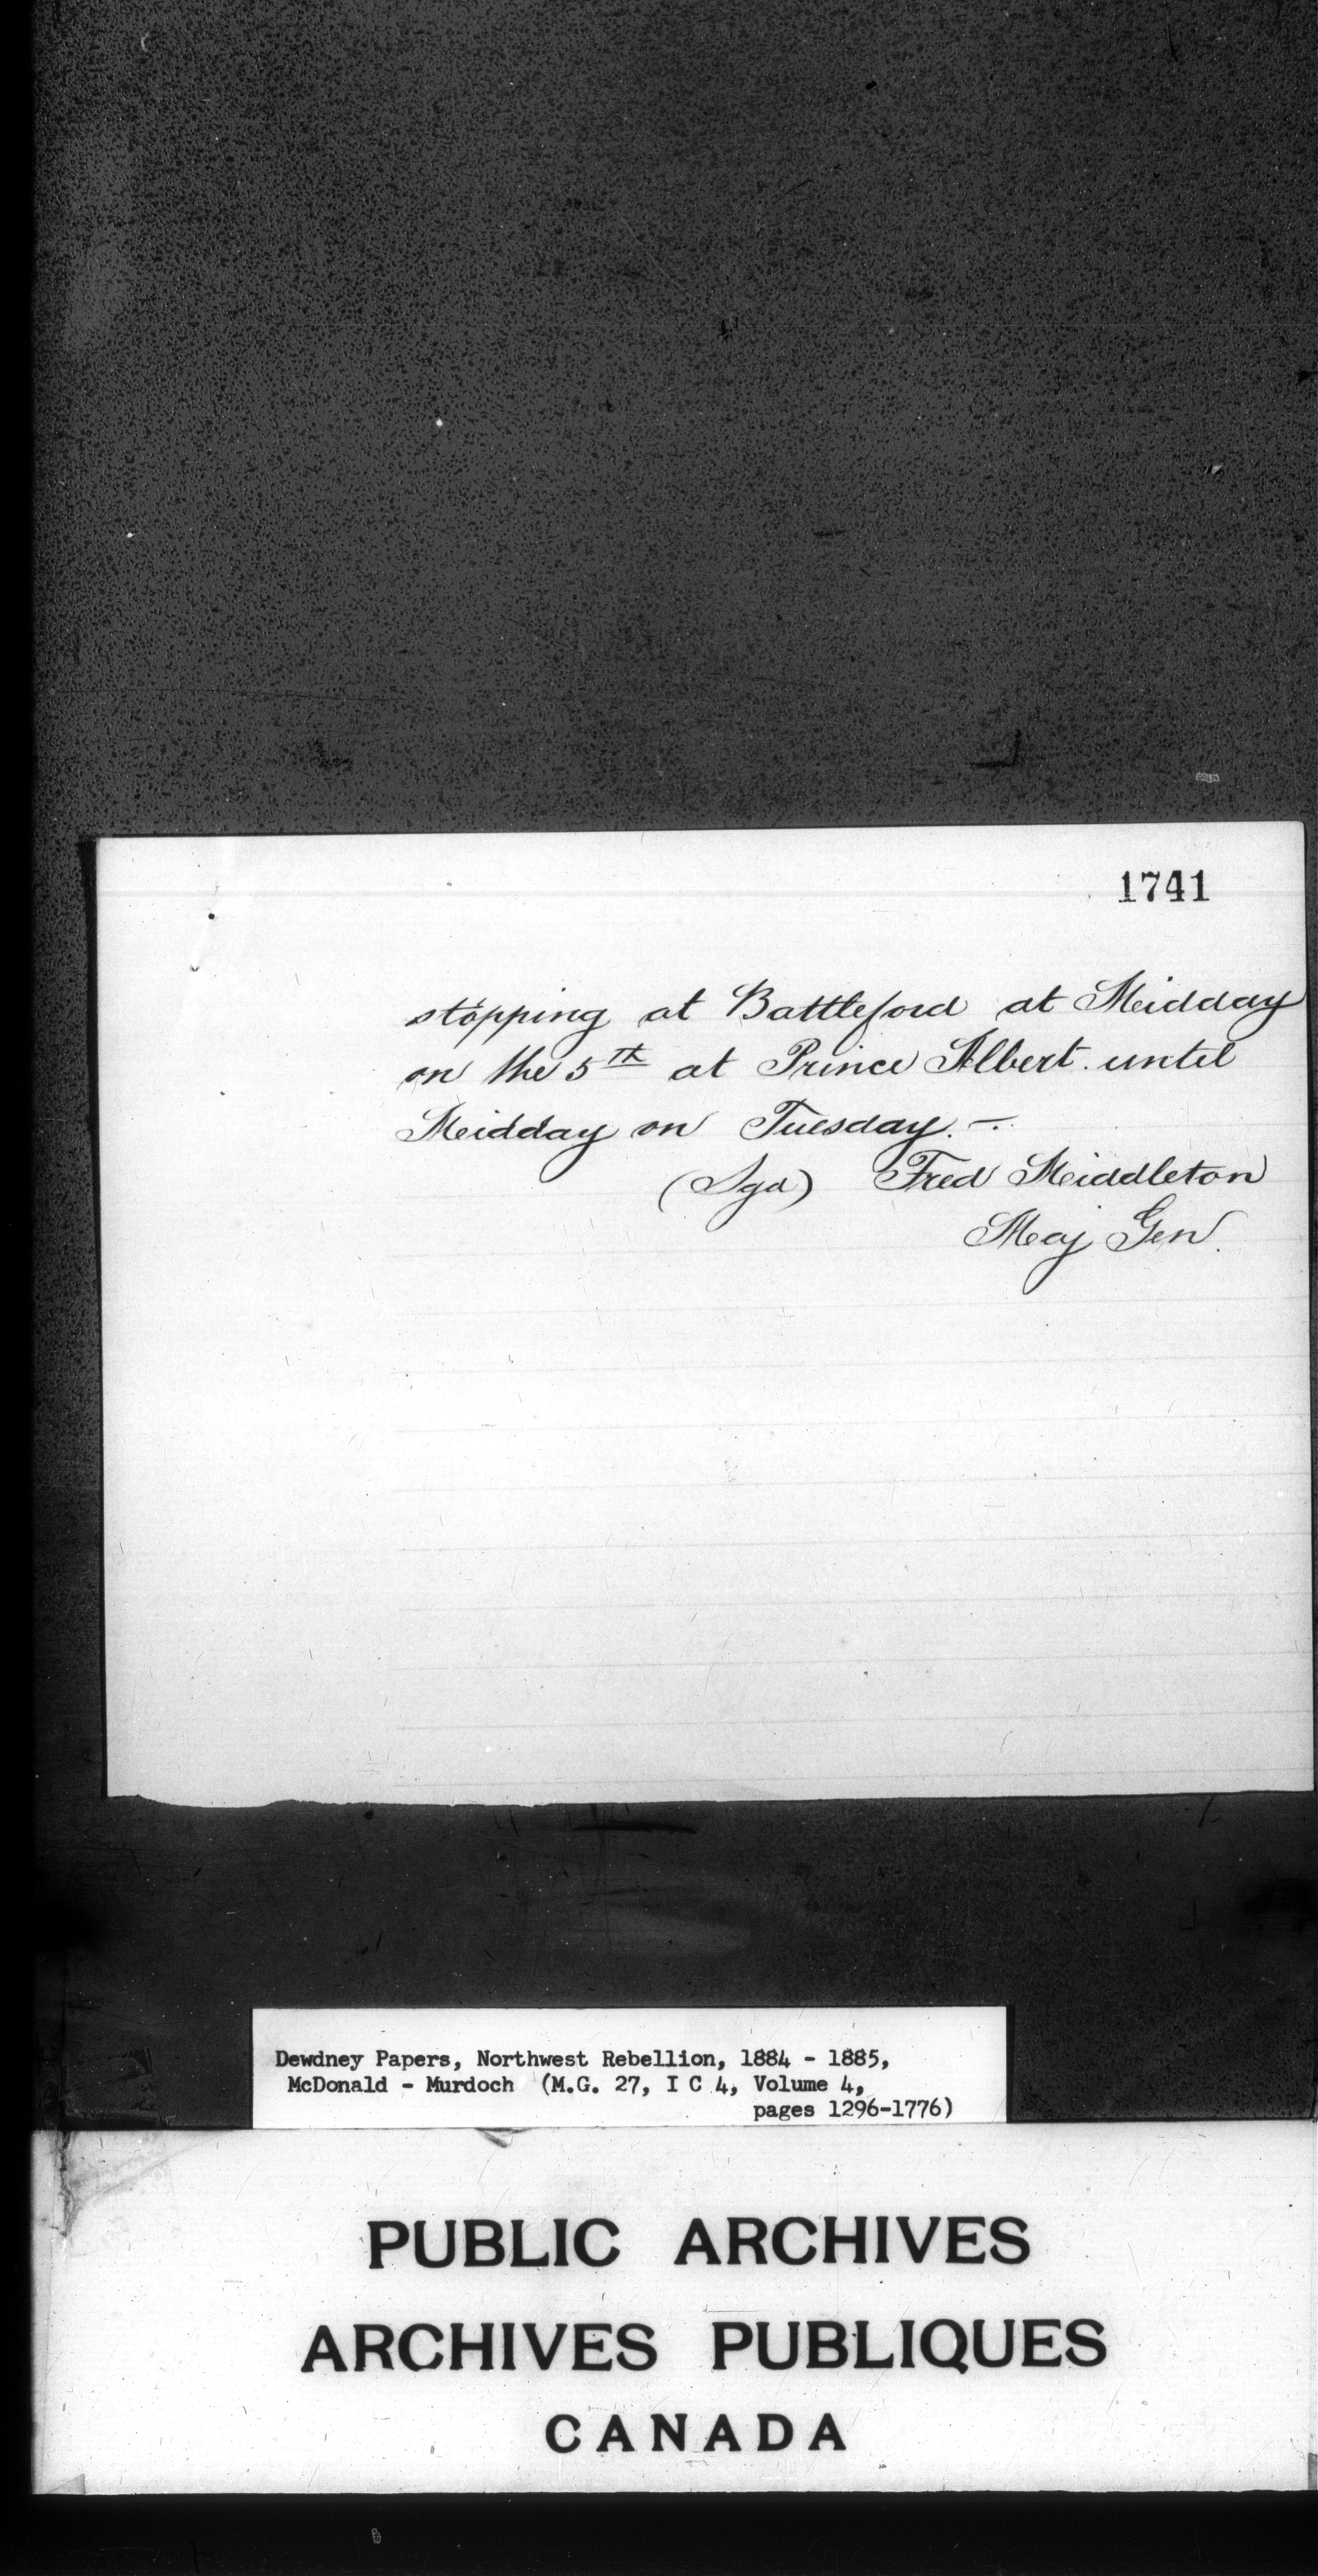 1741
stopping at Battleford at Midday
on the 5th at Prince Albert. until
Midday on Tuesday. —.
(Sgd) Fred Middleton
Maj Gen.
Dewdney Papers, Northwest Rebellion, 1884 - 1885,
McDonald - Murdoch (M.G. 27, I C 4, Volume 4,
pages 1296-1776)
PUBLIC ARCHIVES
ARCHIVES PUBLIQUES
CANADA